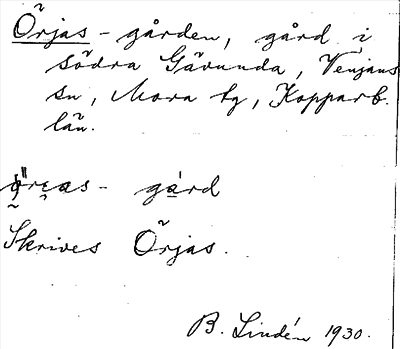 Örjas-gården, gård i
södra Gävunda, Venjans
sn, Mora tg, Kopparb.
län.
gård
Skrives Örjas.
B. Lindén 1930.